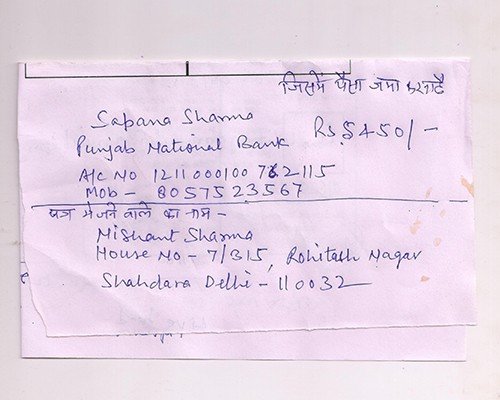 जिसमें पैसा जमा करना है
Sapana Sharma
Rs 5450/-
Punjab National Bank
A/c No 1211000100762115
Mob - 8057523567
पत्र भेजने वाले का नाम -
Nishant Sharma
House No - 7/315, Rohitash Nagar
Shahdara Delhi - 110032